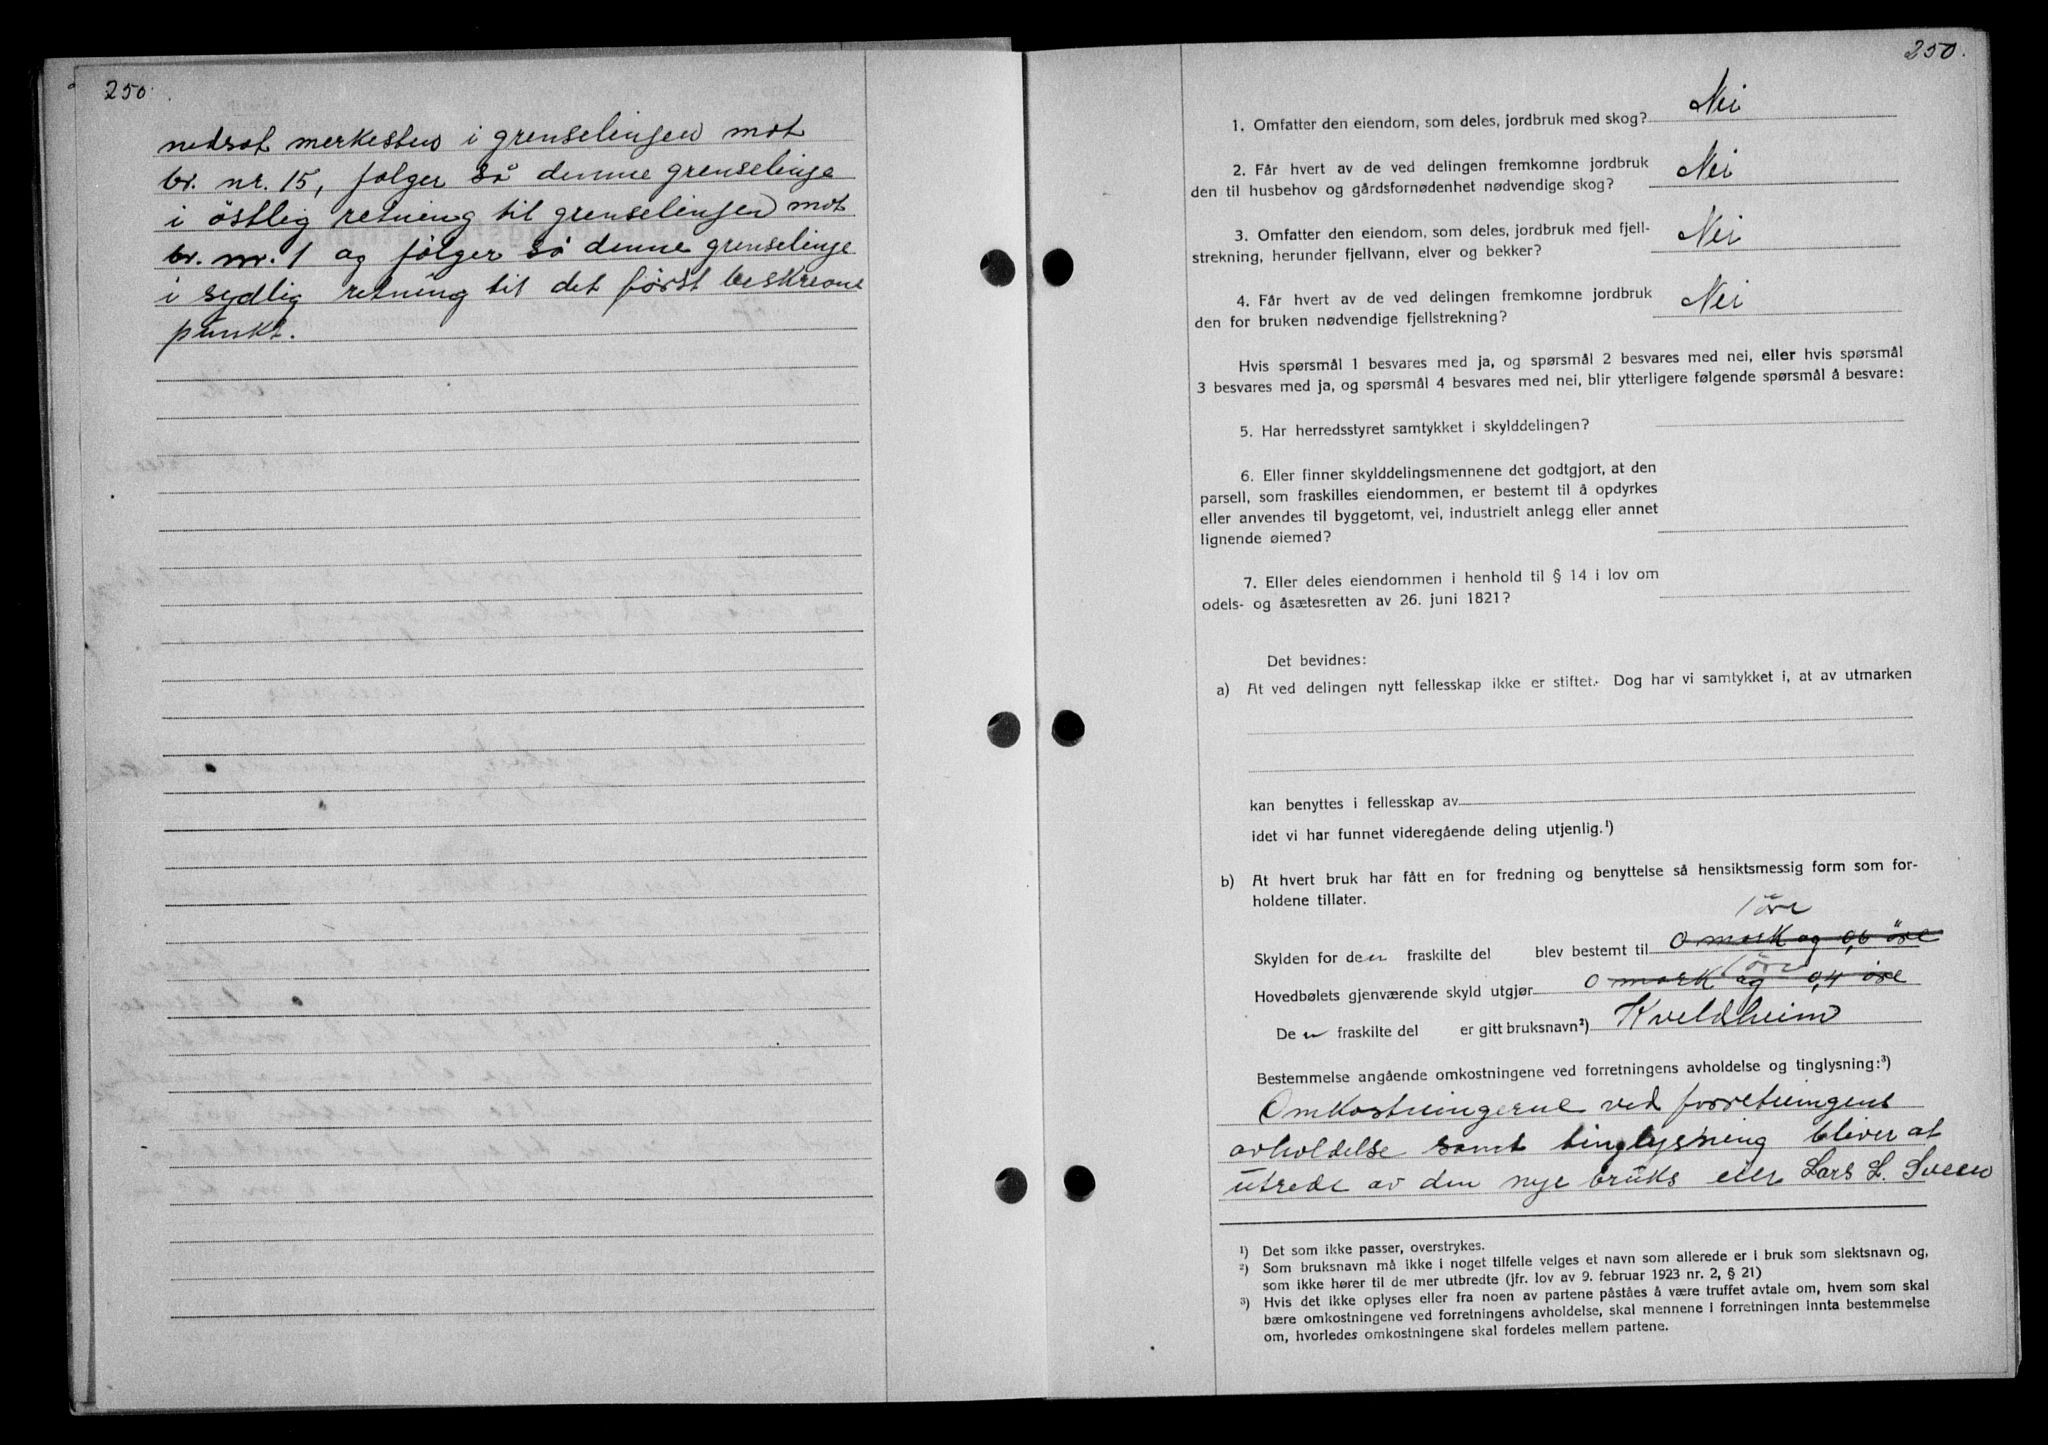 250.
nedsat merkesten i grenselinjen mot
br. nr. 15, følger så denne grenselinje
i östlig retning til grenselinjen mot
br. nr. 1 og følger så denne grenselinje
i sydlig retning til det først beskrevne
punkt.
250.
1. Omfatter den eiendom, som deles, jordbruk med skog? Nei
2. Får hvert av de ved delingen fremkomne jordbruk
den til husbehov og gårdsfornødenhet nødvendige skog? Nei
3. Omfatter den eiendom, som deles, jordbruk med fjell-
strekning, herunder fjellvann, elver og bekker? Nei
4. Får hvert av de ved delingen fremkomne jordbruk
den for bruken nødvendige fjellstrekning? Nei
Hvis spørsmål 1 besvares med ja, og spørsmål 2 besvares med nei, eller hvis spørsmål
3 besvares med ja, og spørsmål 4 besvares med nei, blir ytterligere følgende spørsmål å besvare:
5. Har herredsstyret samtykket i skylddelingen?
6. Eller finner skylddelingsmennene det godtgjort, at den
parsell, som fraskilles eiendommen, er bestemt til å opdyrkes
eller anvendes til byggetomt, vei, industrielt anlegg eller annet
lignende øiemed?
7. Eller deles eiendommen i henhold til § 14 i lov om
odels- og åsætesretten av 26. juni 1821?
Det bevidnes:
a) At ved delingen nytt fellesskap ikke er stiftet.- Dog har vi samtykket i, at av utmarken
kan benyttes i fellesskap av
idet vi har funnet videregående deling utjenlig.¹)
b) At hvert bruk har fått en for fredning og benyttelse så hensiktsmessig form som for-
holdene tillater.
1 öre
Skylden for den fraskilte del blev bestemt til 0 mark og 0,6 öre
1 öre
Hovedbølets gjenværende skyld utgjør 0 mark og 0,4 öre
Den fraskilte del er gitt bruksnavn²) Kveldheim
Bestemmelse angående omkostningene ved forretningens avholdelse og tinglysning:³)
Omkostningerne ved forretningens
avholdelse samt tinglysning bliver at
utrede av den nye bruks eier Lars L. Sveen
¹) Det som ikke passer, overstrykes.
²) Som bruksnavn må ikke i noget tilfelle velges et navn som allerede er i bruk som slektsnavn og,
som ikke hører til de mer utbredte (jfr. lov av 9. februar 1923 nr. 2, § 21)
³) Hvis det ikke oplyses eller fra noen av partene påståes å være truffet avtale om, hvem som skal
bære omkostningene ved forretningens avholdelse, skal mennene i forretningen innta bestemmelse
om, hvorledes omkostningene skal fordeles mellem partene.